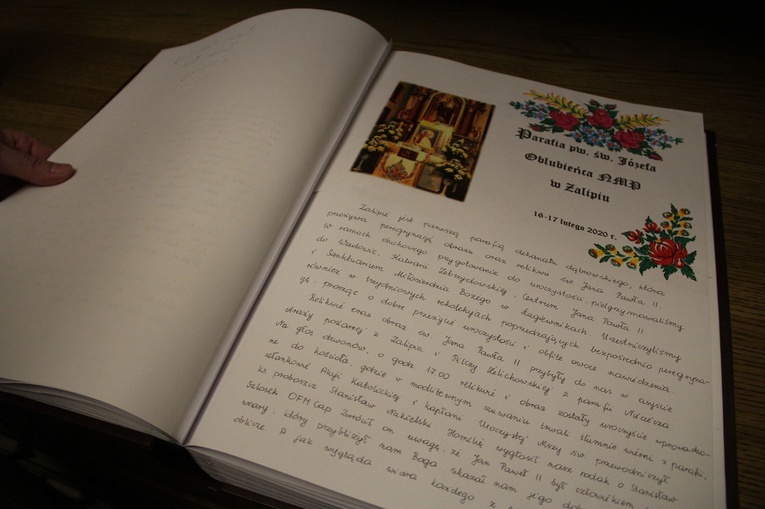 Parafia pw. św. Józefa
Oblubieńca NMP
w Zalipiu
16-17 lutego 2020 r.
Zalipie jest pierwszą parafią dekanatu dąbrowskiego, która
przeżywa peregrynację obrazu oraz relikwii św. Jana Pawła II.
W ramach duchowego przygotowania do uroczystości, pielgrzymowaliśmy
do Wadowic, Kalwarii Zebrzydowskiej, Centrum Jana Pawła II
i Sanktuarium Miłosierdzia Bożego w Łagiewnikach. Uczestniczyliśmy
również w trzydniowych rekolekcjach poprzedzających bezpośrednio peregryna-
cję, prosząc o dobre przeżycie uroczystości i obfite owoce nawiedzenia.
Relikwie oraz obraz św. Jana Pawła II przybyły do nas w asyście
straży pożarnej z Zalipia i Pilczy Żelichowskiej z parafii
Na głos dzwonów, o godz. 17.00 relikwie i obraz zostały uroczyście wprowadzo-
ne do kościoła, gdzie w modlitewnym czuwaniu trwali tłumnie wierni z parafii,
członkowie Akcji Katolickiej i kapłani. Uroczystej Mszy św. przewodniczył
ks. proboszcz Stanisław Homilię wygłosił nasz rodak o. Stanisław
OFM Cap. Zwrócił on uwagę, że Jan Paweł II był człowiekiem
wiary, który przybliżył nam Boga, ukazał nam jego
oblicze. A jak wygląda wiara każdego z